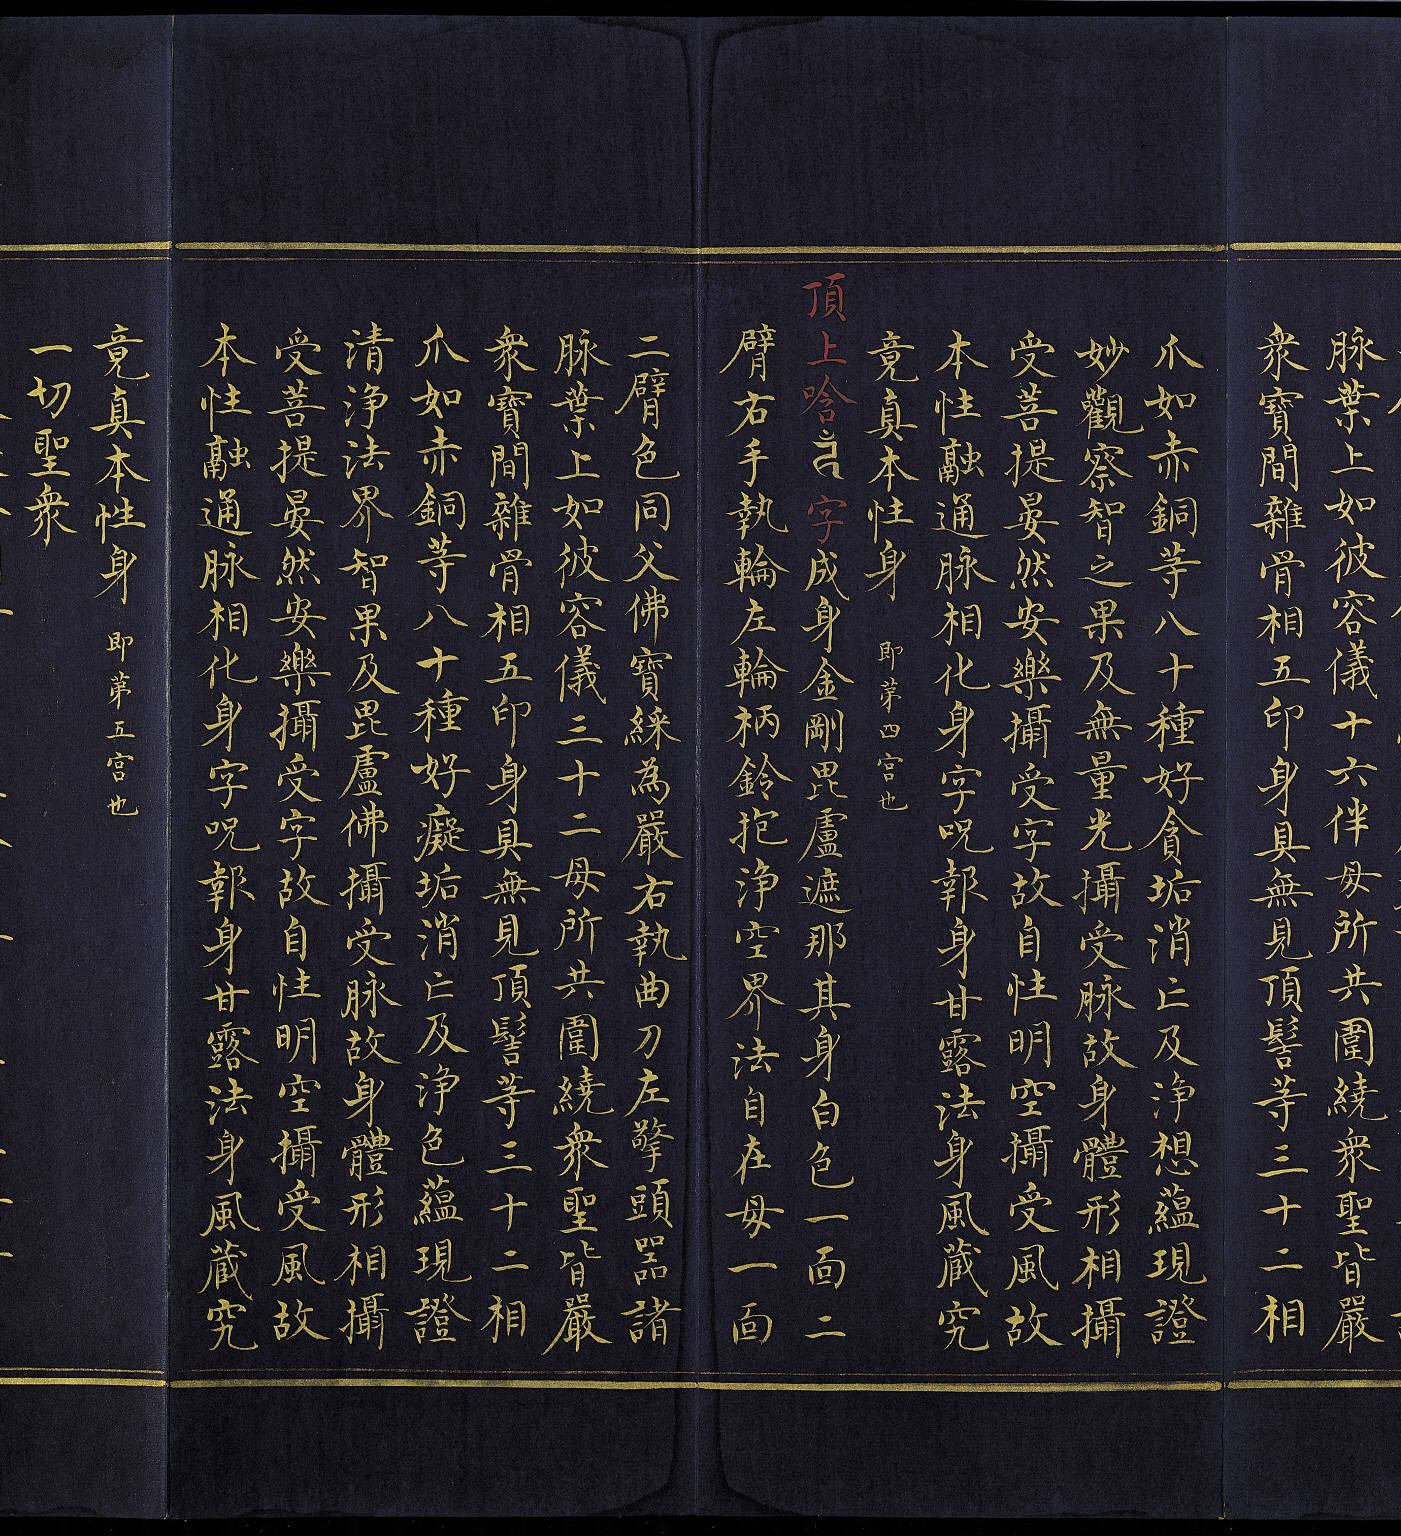 脉葉上如彼容儀十六伴母所共圍繞衆聖皆嚴
衆寶間雜骨相五印身具無見頂髻等三十二相
爪如赤銅等八十種好貪垢消亡及淨想蘊現證
妙觀察智之果及無量光攝受脉故身體形相攝
受菩提晏然安樂攝受字故自性明空攝受風故
本性融通脉相化身字呪報身甘露法身風藏究
竟真本性身 即苐四宮也
頂上唅字成身金剛毘盧遮那其身白色一面二
臂右手執輪左輪柄鈴抱淨空界法自在母一面
二臂色同父佛寶綵為嚴右執曲刀左擎頭器諸
脉葉上如彼容儀三十二母所共圍繞衆聖皆嚴
衆寶間雜骨相五印身具無見頂髻等三十二相
爪如赤銅等八十種好癡垢消亡及淨色蘊現證
清淨法界智果及毘盧佛攝受脉故身體形相攝
受菩提晏然安樂攝受字故自性明空攝受風故
本性融通脉相化身字呪報身甘露法身風藏究
竟真本性身 即苐五宮也
一切聖衆